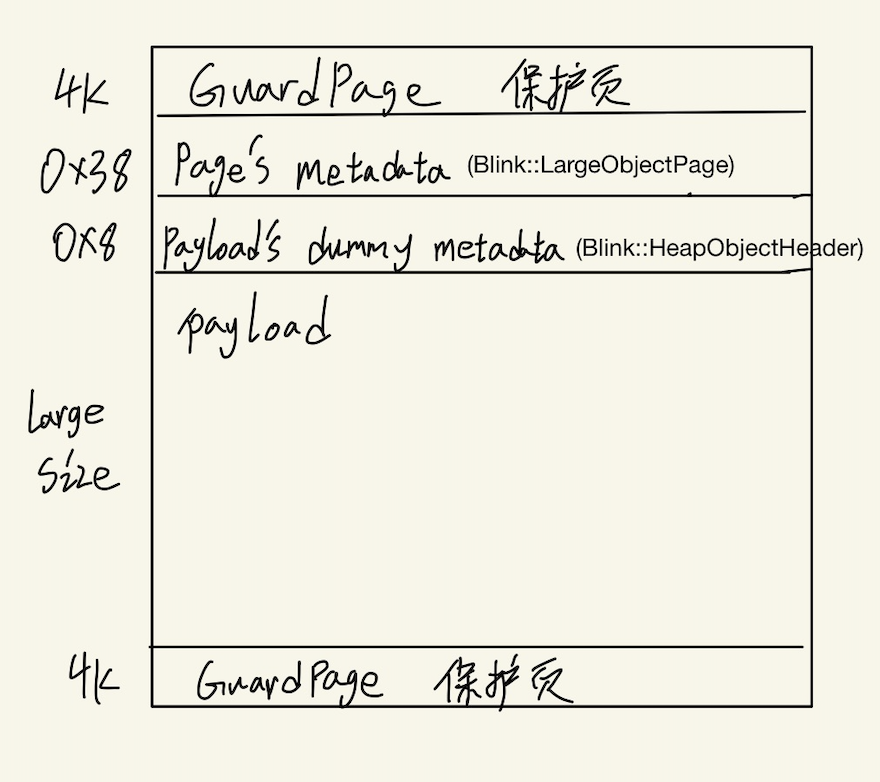 4K GuardPage 保护页
0x38 Page's metadata (Blink::LargeObjectPage)
0x8 Payload's dummy metadata (Blink::HeapObjectHeader)
payload
Large
Size
4K GuardPage 保护页